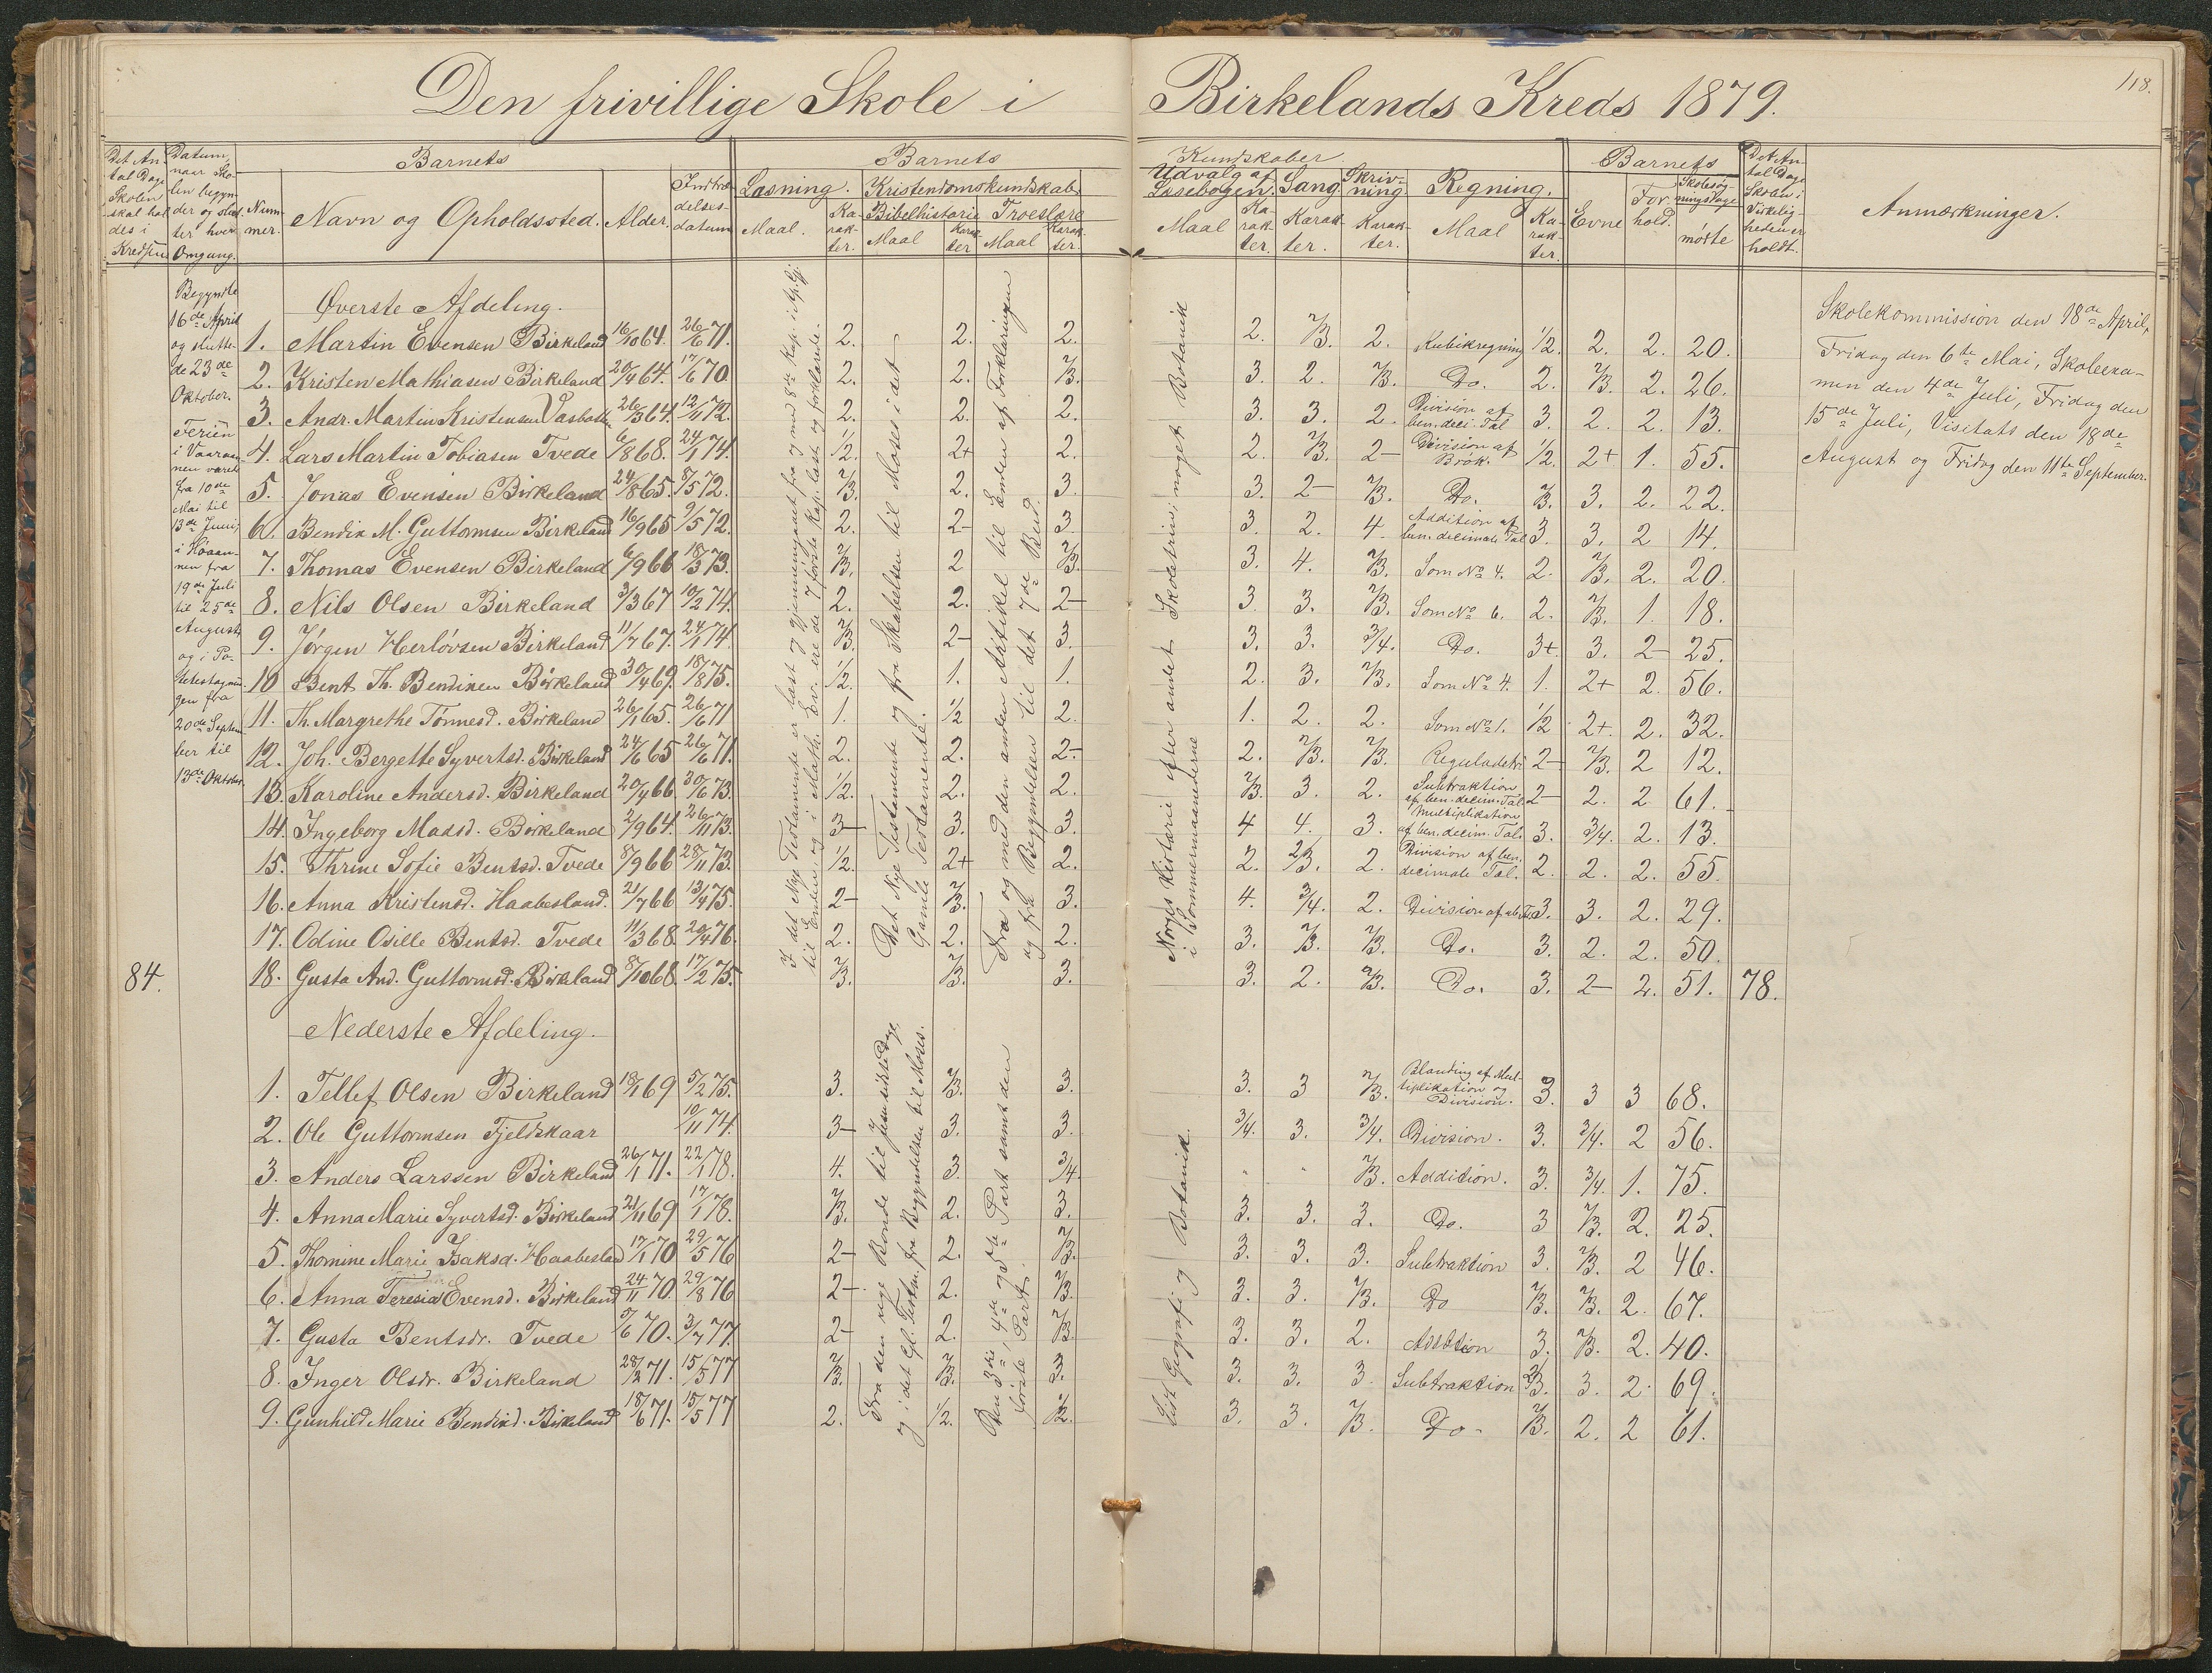 118.
Den frivillige Skole i Birkelands Kreds 1879.
Det Antal Dage Skolen skal holdes i Kredsen
Datum, naar Skolen begynder og slutter hver Omgang.
Nummer.
Barnets
Navn og Opholdssted.
Alder.
Indtrædelsesdatum
Barnets Kundskaber
Læsning.
Maal.
Karakter.
Kristendomskundskab.
Bibelhistorie
Maal
Karakter
Troeslære
Maal
Karakter.
Udvalg af Læsebogen.
Maal
Karakter.
Sang
Karakter.
Skrivning.
Karakter.
Regning.
Maal
Karakter.
Barnets
Evne
Forhold.
Skolesøgningsdage
mødte
Det Antal Dage Skolen i Virkeligheden er holdt.
Anmærkninger.
Begyndte
16de April
og slutte-
de 23de
Oktober.
Ferien
i Vaaraan-
nen varet
fra 10de
Mai til
13de Juni,
i Høaan-
nen fra
19de Juli
til 25de
August
og i Po-
tetestagnin-
gen fra
20de Septem-
ber til
13de Oktober.
84.
Øverste Afdeling.
1. Martin Evensen Birkeland 16/10 64. 26/6 71. 2. 2. 2. 2. 2/3. 2. Kubikregning 1/2. 2. 2. 20.
2. Kristen Mathiasen Birkeland 20/4 64. 17/6 70. 2. 2. 2/3. 3. 2. 2/3. Do. 2. 2/3. 2. 26.
3. Andr. Martin Kristensen 26/3 64. 12/11 72. 2. 2. 2. 3. 3. 2. Division af ben. deci. Tal 3. 2. 2. 13.
4. Lars Martin Tobiasen Tvede 6/8 68. 24/1 74. 1/2. 2+ 2. 2. 2/3. 2- Division af Brøk. 1/2. 2+ 1. 55.
5. Jonas Evensen Birkeland 24/8 65. 8/5 72. 2/3. 2. 3. 3. 2- 2/3. Do. 2/3. 3. 2. 22.
6. Bendix M. Guttormsen Birkeland 16/9 65 9/5 72. 2. 2- 3 3. 2. 4. Addition af ben. decimale Tal 3. 3. 2 14.
7. Thomas Evensen Birkeland 6/9 66 18/3 73. 2/3. 2 2/3. 3. 4. 2/3. Som No 4. 2. 2/3. 2. 20.
8. Nils Olsen Birkeland 3/3 67 10/2 74. 2. 2. 2- 3 3. 2/3. Som No 6. 2. 2/3. 1. 18.
9. Jørgen Herløvsen Birkeland 11/7 67. 24/1 74. 2/3. 2- 3. 3. 3. 3/4. Do. 3+. 3. 2- 25.
10 Bent Th. Bendixen Birkeland 30/4 69. 18/8 75. 1/2. 1. 1. 2. 3. 2/3. Som No 4. 1. 2+ 2. 56.
11. Th. Margrethe Tønnesd. Birkeland 26/1 65. 26/6 71 1. 1/2 2. 1. 2. 2. Som No 1. 1/2 2+. 2. 32.
12. Joh. Bergette Syvertsd. Birkeland 24/6 65 26/6 71. 2. 2. 2- 2. 2/3. 2/3. Reguladetri 2- 2/3. 2 12.
13. Karoline Andersd. Birkeland 20/4 66 30/6 73. 1/2. 2. 2. 2/3. 3. 2. Subtraktion af ben. decim. Tal 2- 2. 2 61.
14. Ingeborg Madsd. Birkeland 2/9 64. 26/11 73. 3- 3. 3. 4 4. 3. Multiplikation af ben. decim. Tal 3. 3/4. 2. 13.
15. Thrine Sofie Bentsd. Tvede 8/9 66 28/11 73. 1/2. 2+ 2. 2. 2/3. 2. Division af ben. decimale Tal. 2. 2. 2. 55.
16. Anna Kristensd. Haabesland. 21/7 66 13/4 75. 2- 2/3. 3. 4. 3/4. 2. Division af 3. 3. 2. 29.
17. Odine Osille Bentsd. Tvede 11/3 68. 20/4 76. 2. 2. 2. 3. 2/3. 2/3. Do. 3. 2. 2. 50.
18. Gusta And. Guttormsd. Birkeland 8/10 68. 17/2 75. 2/3. 2/3. 3. 3. 2. 2/3. Do. 3. 2- 2. 51. 78.
I det Nye Testamente er læst og gjennemgaaet fra og med 8de Kap. i Ap. Gj.
til Enden og i Math. Ev. ere de 7 første Kap. læst og forklarede.
Det Nye Testamente og fra Skabelsen til Moses i det
Gamle Testamente.
Fra og med den anden Artikel til Enden af Forklaringen
og fra Begynnelsen til det 7de Bud.
Norges Historie efter andet Skoletrin, noget Botanik
i Sommermaanederne
Skolekommission den 18de April,
Fridag den 6te Mai, Skoleexa-
men den 4de Juli, Fridag den
15de Juli, Visitats den 18de
August og Fridag den 11te September.
Nederste Afdeling.
1. Tellef Olsen Birkeland 18/1 69 5/2 75. 3. 2/3. 3. 3. 3 2/3. Blanding af Multiplikation og Division. 3. 3 3 68.
2. Ole Guttormsen Fjeldskaar 10/11 74. 3- 3. 3. 3/4. 3. 3/4. Division. 3. 3/4. 2 56.
3. Anders Larssen Birkeland 26/1 71. 22/1 78. 4. 3. 3/4. " " 2/3. Addition. 3. 3/4. 1. 75.
4. Anna Marie Syvertsd. Birkeland 21/11 69 17/1 78. 2/3. 2. 3. 3. 3. 3. Do. 3 2/3. 2. 25.
5. Thomine Marie Isaksd. Haabesland 17/1 70 29/5 76 2- 2. 2/3. 3. 3. 3. Subtraktion 3. 2/3. 2 46.
6. Anna Teresia Evensd. Birkeland 24/11 70. 29/8 76 2- 2. 2/3. 3. 3. 2/3. Do 2/3. 2/3. 2. 67.
7. Gusta Bentsdr. Tvede 5/6 70. 3/7 77 2- 2. 2/3. 3. 3. 2. Addition 3. 2/3. 2. 40.
8. Inger Olsdr. Birkeland 28/2 71. 15/5 77 2/3. 2/3. 3. 3. 3. 3 Subtraktion 2/3. 3. 2. 69.
9. Gunhild Marie Bendixd. Birkeland 18/6 71. 15/5 77 2. 1/2. 1/2. 3. 3. 2/3. Do. 2/3. 2. 2 61.
Fra den rige Bonde til Jesu sidste Dage,
og i det Gl. Testm. fra Begyndelsen til Moses.
Den 3die, 4de og 5te Part samt den
første Part.
Lidt Geografi og Botanik.